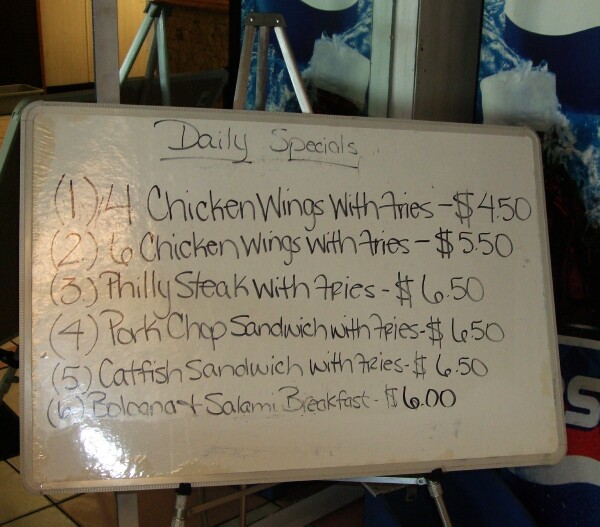 Daily Specials
(1.) 4 Chicken Wings With Fries - $4.50
(2.) 6 Chicken Wings with Fries - $5.50
(3.) Philly Steak with Fries - $6.50
(4) Pork Chop Sandwich with Fries - $6.50
(5.) Catfish Sandwich with Fries - $6.50
(6.) Bologna + Salami Breakfast - $6.00